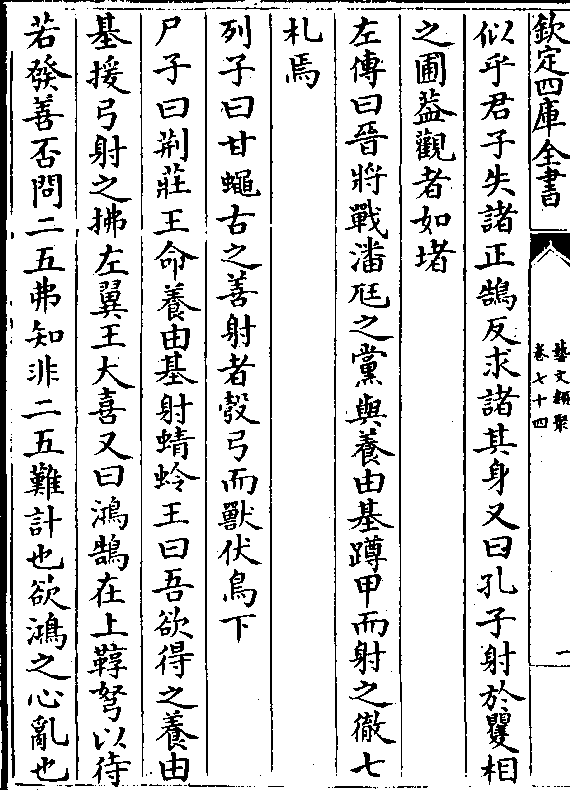 欽定四庫全書
藝文類聚
卷七十四
一
似乎君子失諸正鵠反求諸其身又曰孔子射於矍相
之圃蓋觀者如堵
左傳曰晉將戰潘尪之黨與養由基蹲甲而射之徹七
札焉
列子曰甘蠅古之善射者彀弓而獸伏鳥下
尸子曰荆莊王命養由基射蜻蛉王曰吾欲得之養由
基援弓射之拂左翼王大喜又曰鴻鵠在上鞟弩以待
若發善否問二五弗知非二五難計也欲鴻之心亂也